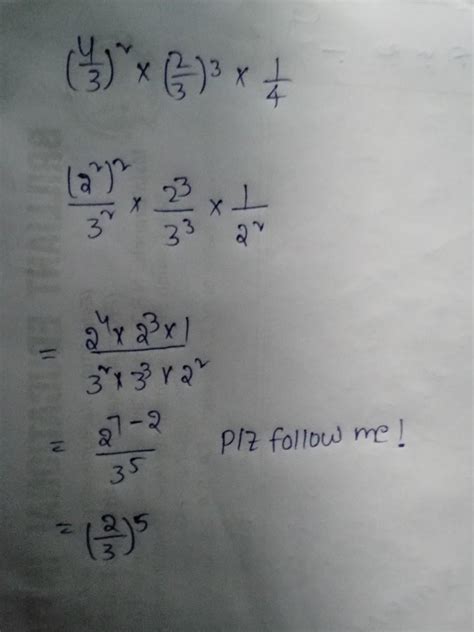 (4/3)² × (2/3)³ × 1/4
(2²)²/3² × 2³/3³ × 1/2²
= 2⁴ × 2³ × 1 / 3² × 3³ × 2²
= 2⁷⁻² / 3⁵ Plz follow me!
= (2/3)⁵